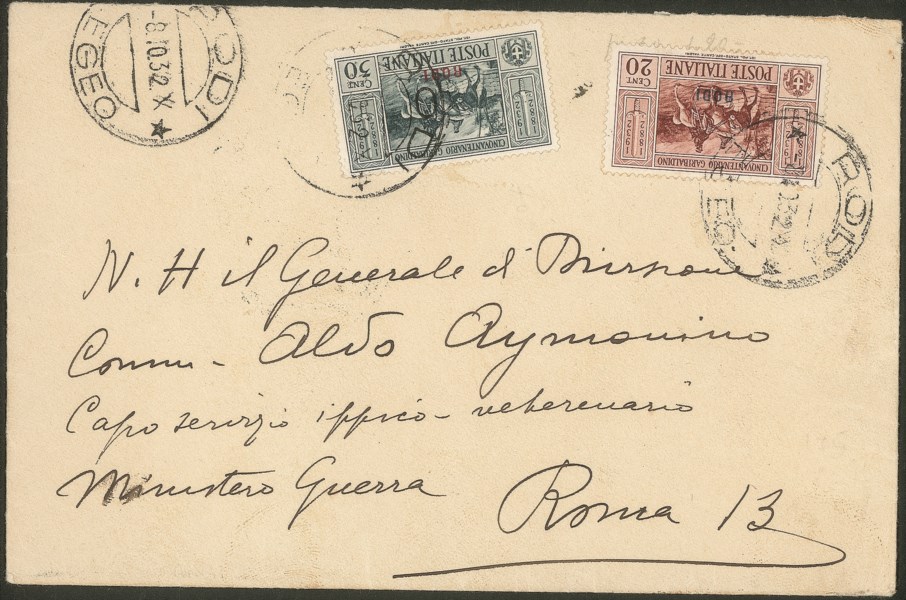 RODI
EGEO
-8.10.32.X
30
CENT
POSTE ITALIANE
RODI
1882
1932
CINQUANTENARIO GARIBALDINO
20
CENT
POSTE ITALIANE
RODI
1882
1932
CINQUANTENARIO GARIBALDINO
RODI
N. H il Generale d' Divisione
Comm - Aldo Aymonino
Capo servizio ippico - veterinario
Ministero Guerra
Roma 13